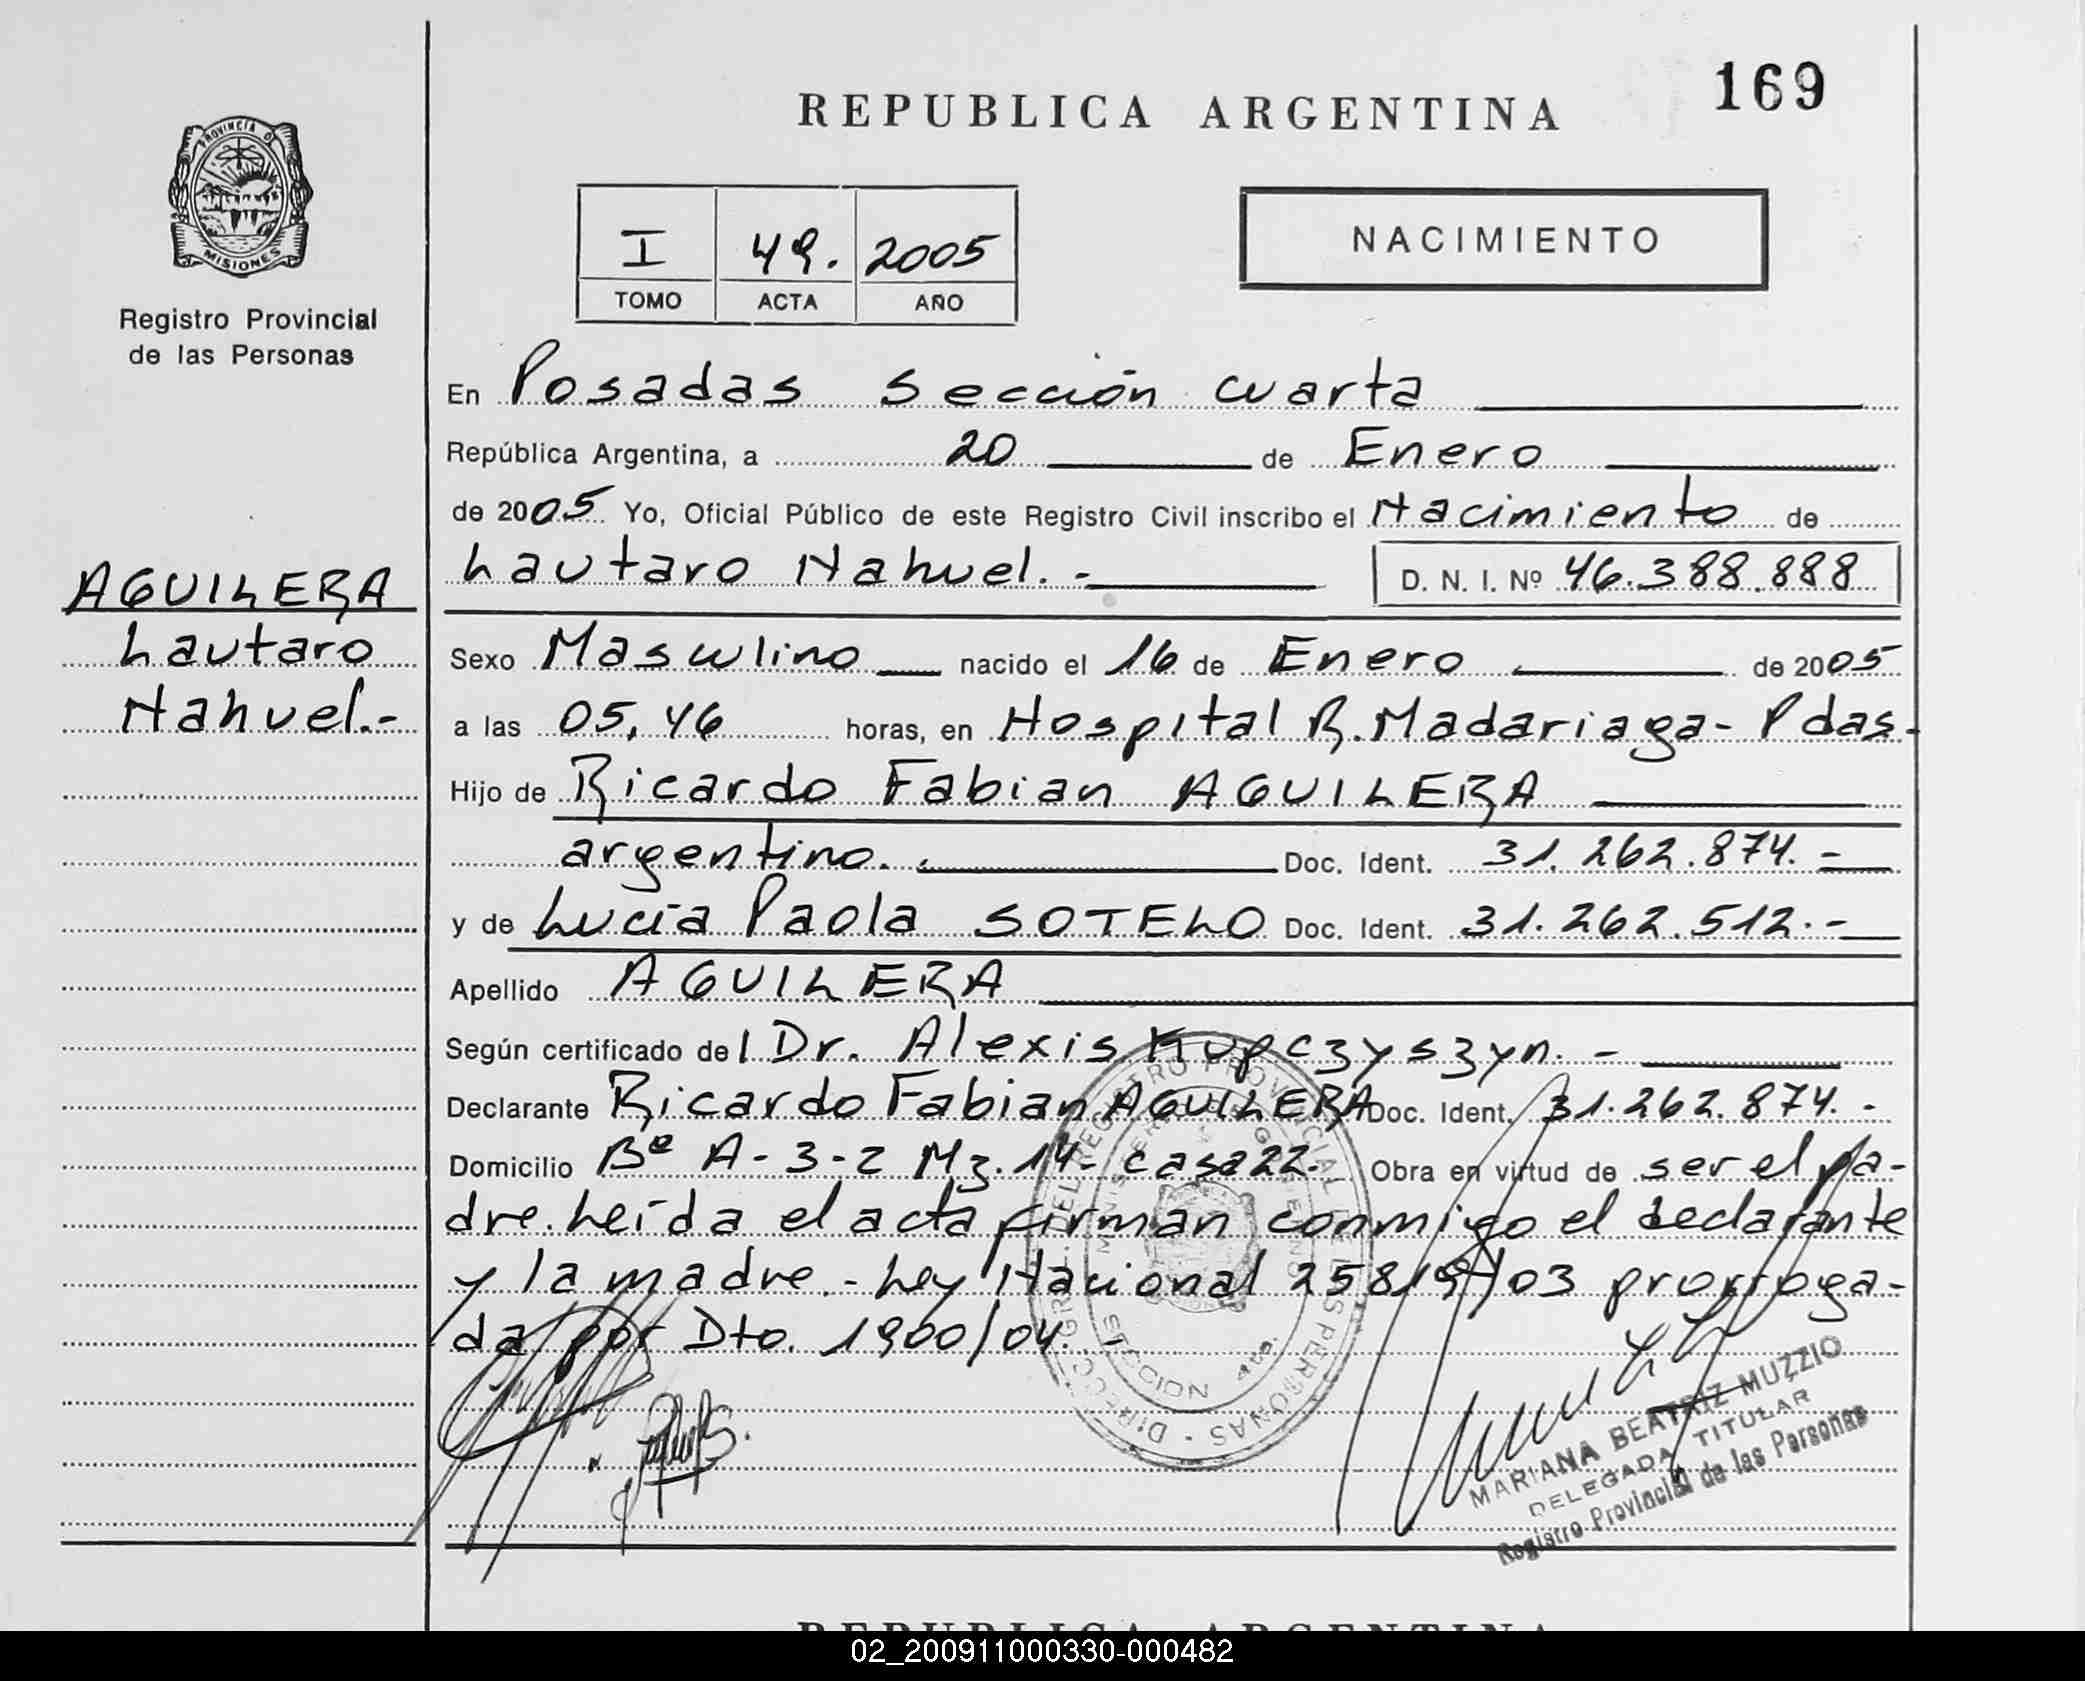 REPUBLICA ARGENTINA
169
PROVINCIA DE
MISIONES
Registro Provincial
de las Personas
I 49. 2005
TOMO ACTA AÑO
NACIMIENTO
En Posadas Sección cuarta
República Argentina, a 20 de Enero
de 2005 Yo, Oficial Público de este Registro Civil inscribo el Nacimiento de
Lautaro Nahuel.- D. N. I. Nº 46.388.888
AGUILERA
Lautaro
Nahuel.-
Sexo Masculino nacido el 16 de Enero de 2005
a las 05,46 horas, en Hospital R. Madariaga- Pdas.
Hijo de Ricardo Fabian AGUILERA
argentino. Doc. Ident. 31.262.874.-
y de Lucia Paola SOTELO Doc. Ident. 31.262.512.-
Apellido AGUILERA
Según certificado del Dr. Alexis Kupczyszyn.-
Declarante Ricardo Fabian AGUILERA Doc. Ident. 31.262.874.-
Domicilio Bº A-3-2 Mz.14- casa 22- Obra en virtud de ser el pa-
dre. Leída el acta firman conmigo el declarante
y la madre.- Ley Nacional 25819/03 prorroga-
da por Dto. 1900/04.
DIRECC. GRAL. DEL REGISTRO PROVINCIAL DE LAS PERSONAS
MINISTERIO DE GOBIERNO
SECCION 4ta.
MARIANA BEATRIZ MUZZIO
DELEGADA TITULAR
Registro Provincial de las Personas
REPUBLICA ARGENTINA
02_200911000330-000482